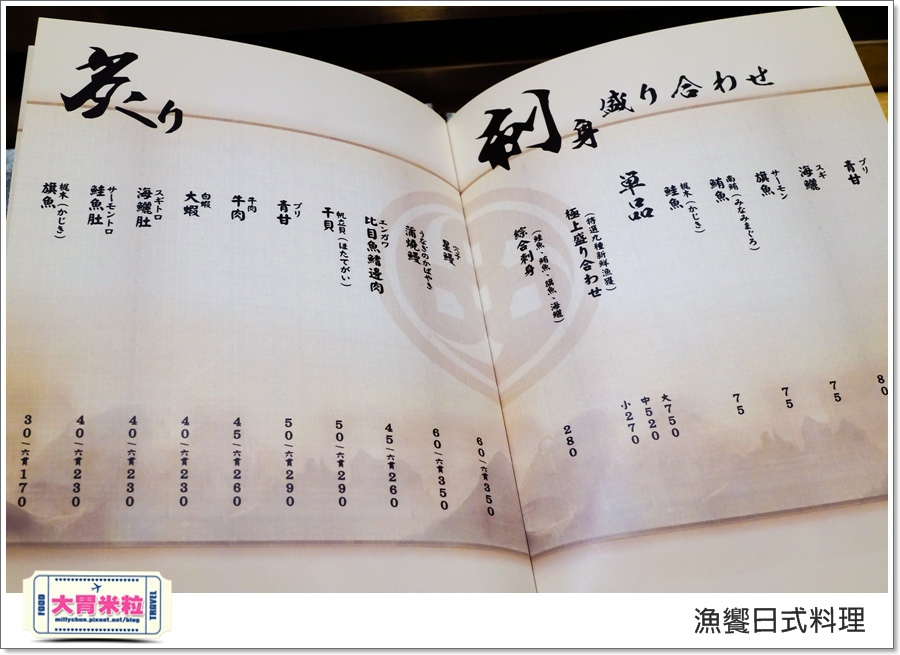 刺身盛り合わせ
ブリ
青甘
80
スギ
海鱺
75
サーモン
旗魚
75
南鮪(みなみまぐろ)
鮪魚
75
梶木(かじき)
鮭魚
單品
(特選九種新鮮漁獲)
極上盛り合わせ
大750
中520
小270
(鮭魚、鮪魚、旗魚、海鱺)
綜合刺身
280
炙り
星鰻
60/六貫350
うなぎのかばやき
蒲燒鰻
60/六貫350
エンガワ
比目魚鰭邊肉
45/六貫260
帆立貝(ほたてがい)
干貝
50/六貫290
ブリ
青甘
50/六貫290
牛肉
牛肉
45/六貫260
白蝦
大蝦
40/六貫230
スギトロ
海鱺肚
40/六貫230
サーモントロ
鮭魚肚
40/六貫230
梶木(かじき)
旗魚
30/六貫170
FOOD
大胃米粒
millychun.pixnet.net/blog
TRAVEL
漁饗日式料理